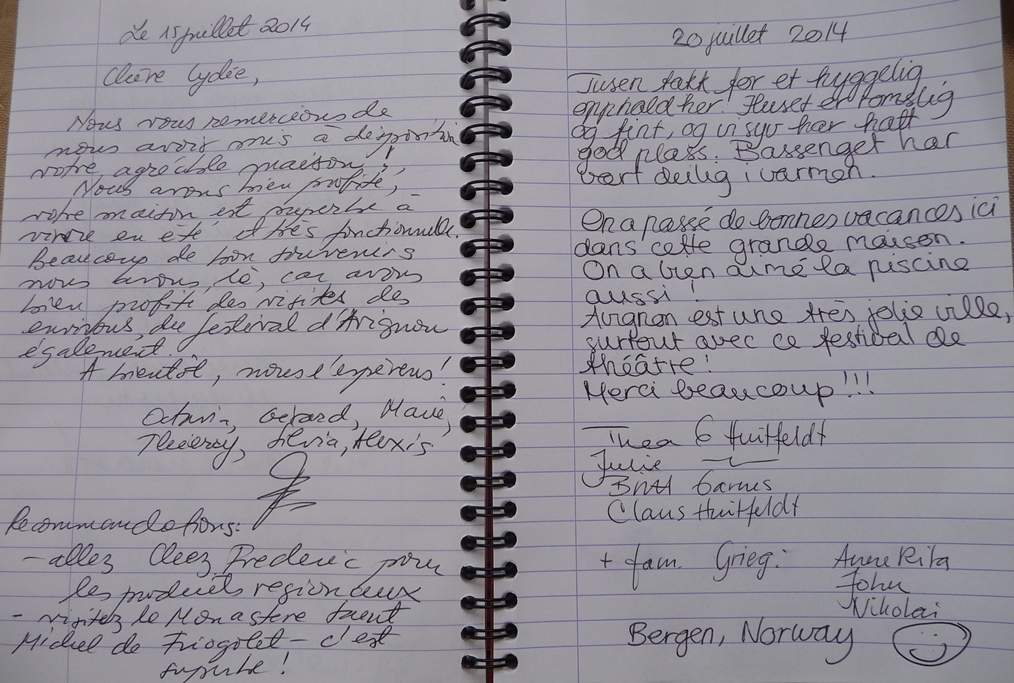 Le 15 juillet 2014
Chère Lydie,
Nous vous remercions de
nous avoir mis à disposition
votre agréable maison!
Nous avons bien profité,
votre maison est superbe à
vivre en été et très fonctionnelle.
Beaucoup de bon souvenirs
nous avons, là, car avons
bien profité des visites des
environs, du festival d'Avignon
également.
A bientôt, nous l'espérons!
Gérard,
Thierry, Silvia, Alexis
Recommandations:
- allez Chez Frederic pour
les produits regionaux
- visitez le Monastere Saint
Michel de Friogolet - c'est
superbe!
20 juillet 2014
Tusen takk for et hyggelig
opphald her! Huset er romslig
og fint, og vi syv har hatt
god plass. Bassenget har
vært deilig i varmen.
On a passé de bonnes vacances ici
dans cette grande maison.
On a bien aimé la piscine
aussi!
Avignon est une très jolie ville,
surtout avec ce festival de
théâtre!
Merci beaucoup!!!
Thea G Huitfeldt
Julie
Garnes
Claus Huitfeldt
+ fam. Grieg: Anne Rita
John
Nikolai
Bergen, Norway